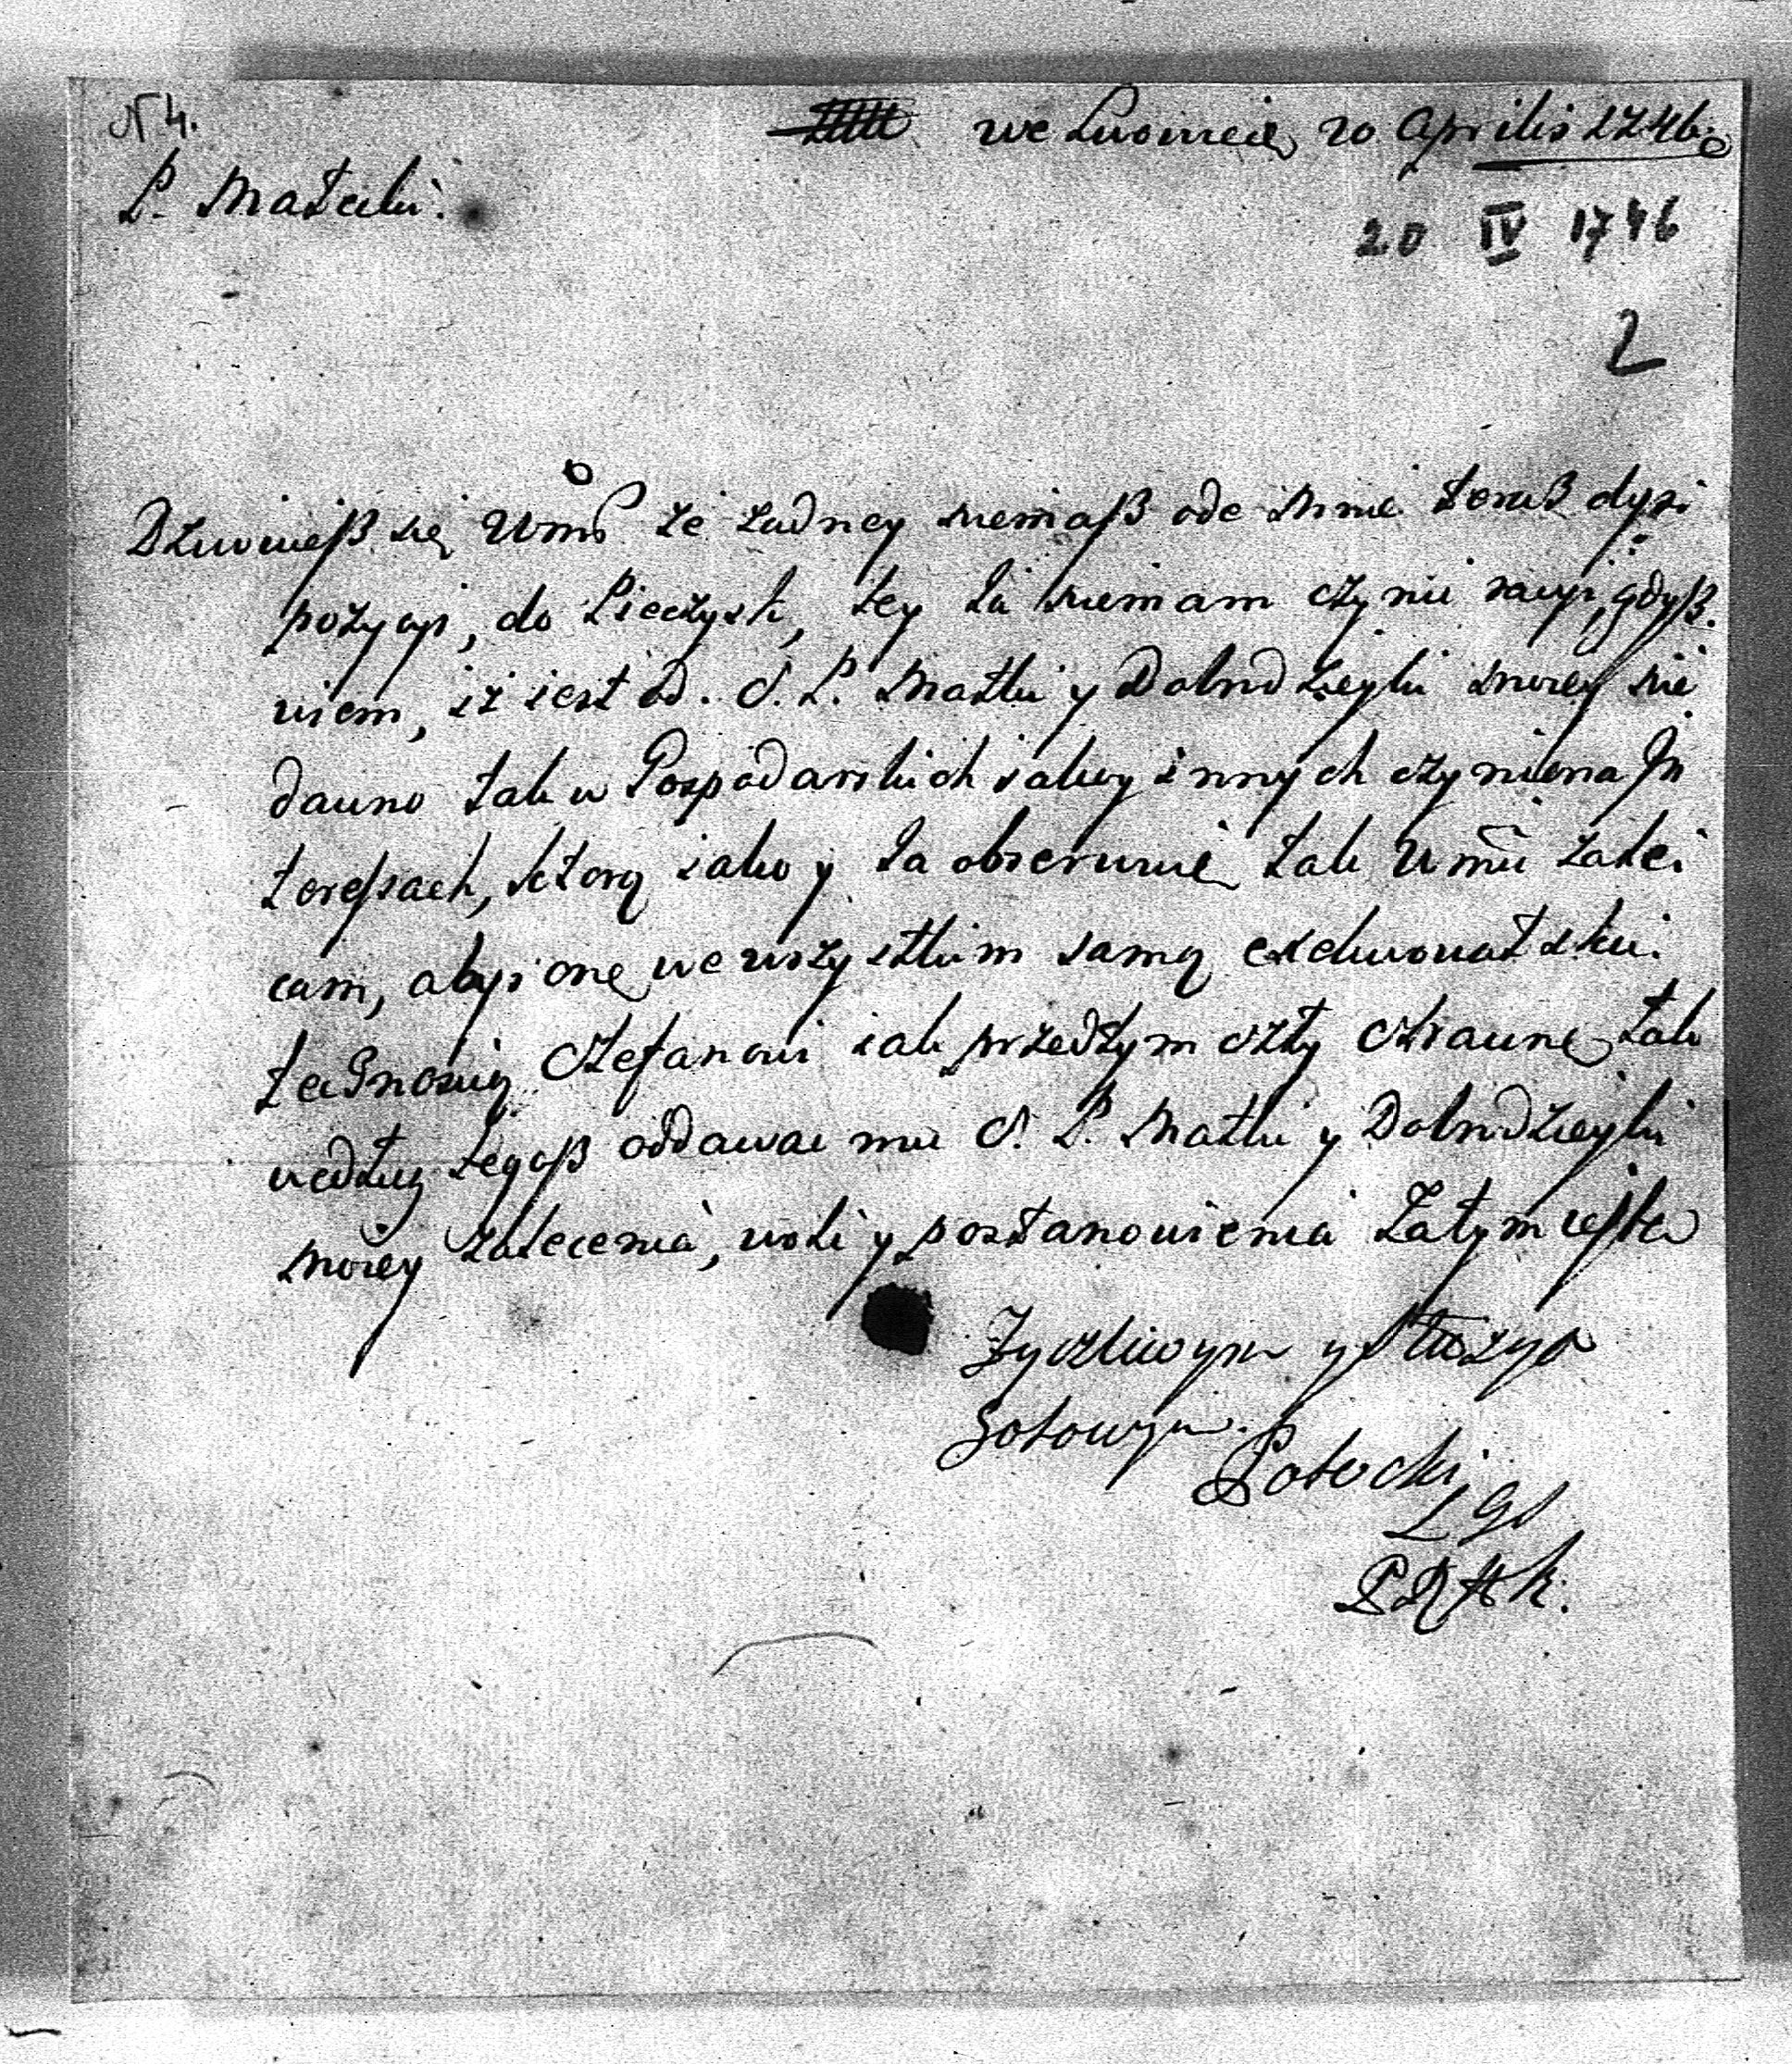 N 4.
we Lwowie 20 Aprilis 1746
P. Małecki.
20 IV 1746
2
Dziwuieß się Wmć że żadney niemaß ode mnie teraz dyß
pozycyi, do Pieczysk, tey Ia niemam czynić racyi, gdyß
wiem, iż iest od. S. P. Matki y Dobrodzieyki moiey nie
dawno tak w Gospodarskich iako y innych czyniona In
teressach, którą iako y Ia obserwuię tak Wmci zalei
cam, abyś onę we wszystkim samą exekwował skui
tecznością Stefanowi iak przedtym czty strawne, tak
według tegoß oddawać mu S. P. Matki y Dobrodzieyki
moiey zalecenia, woli y postanowienia Zatym iestem
Zyczliwym y służyć
Gotowym.
Potocki